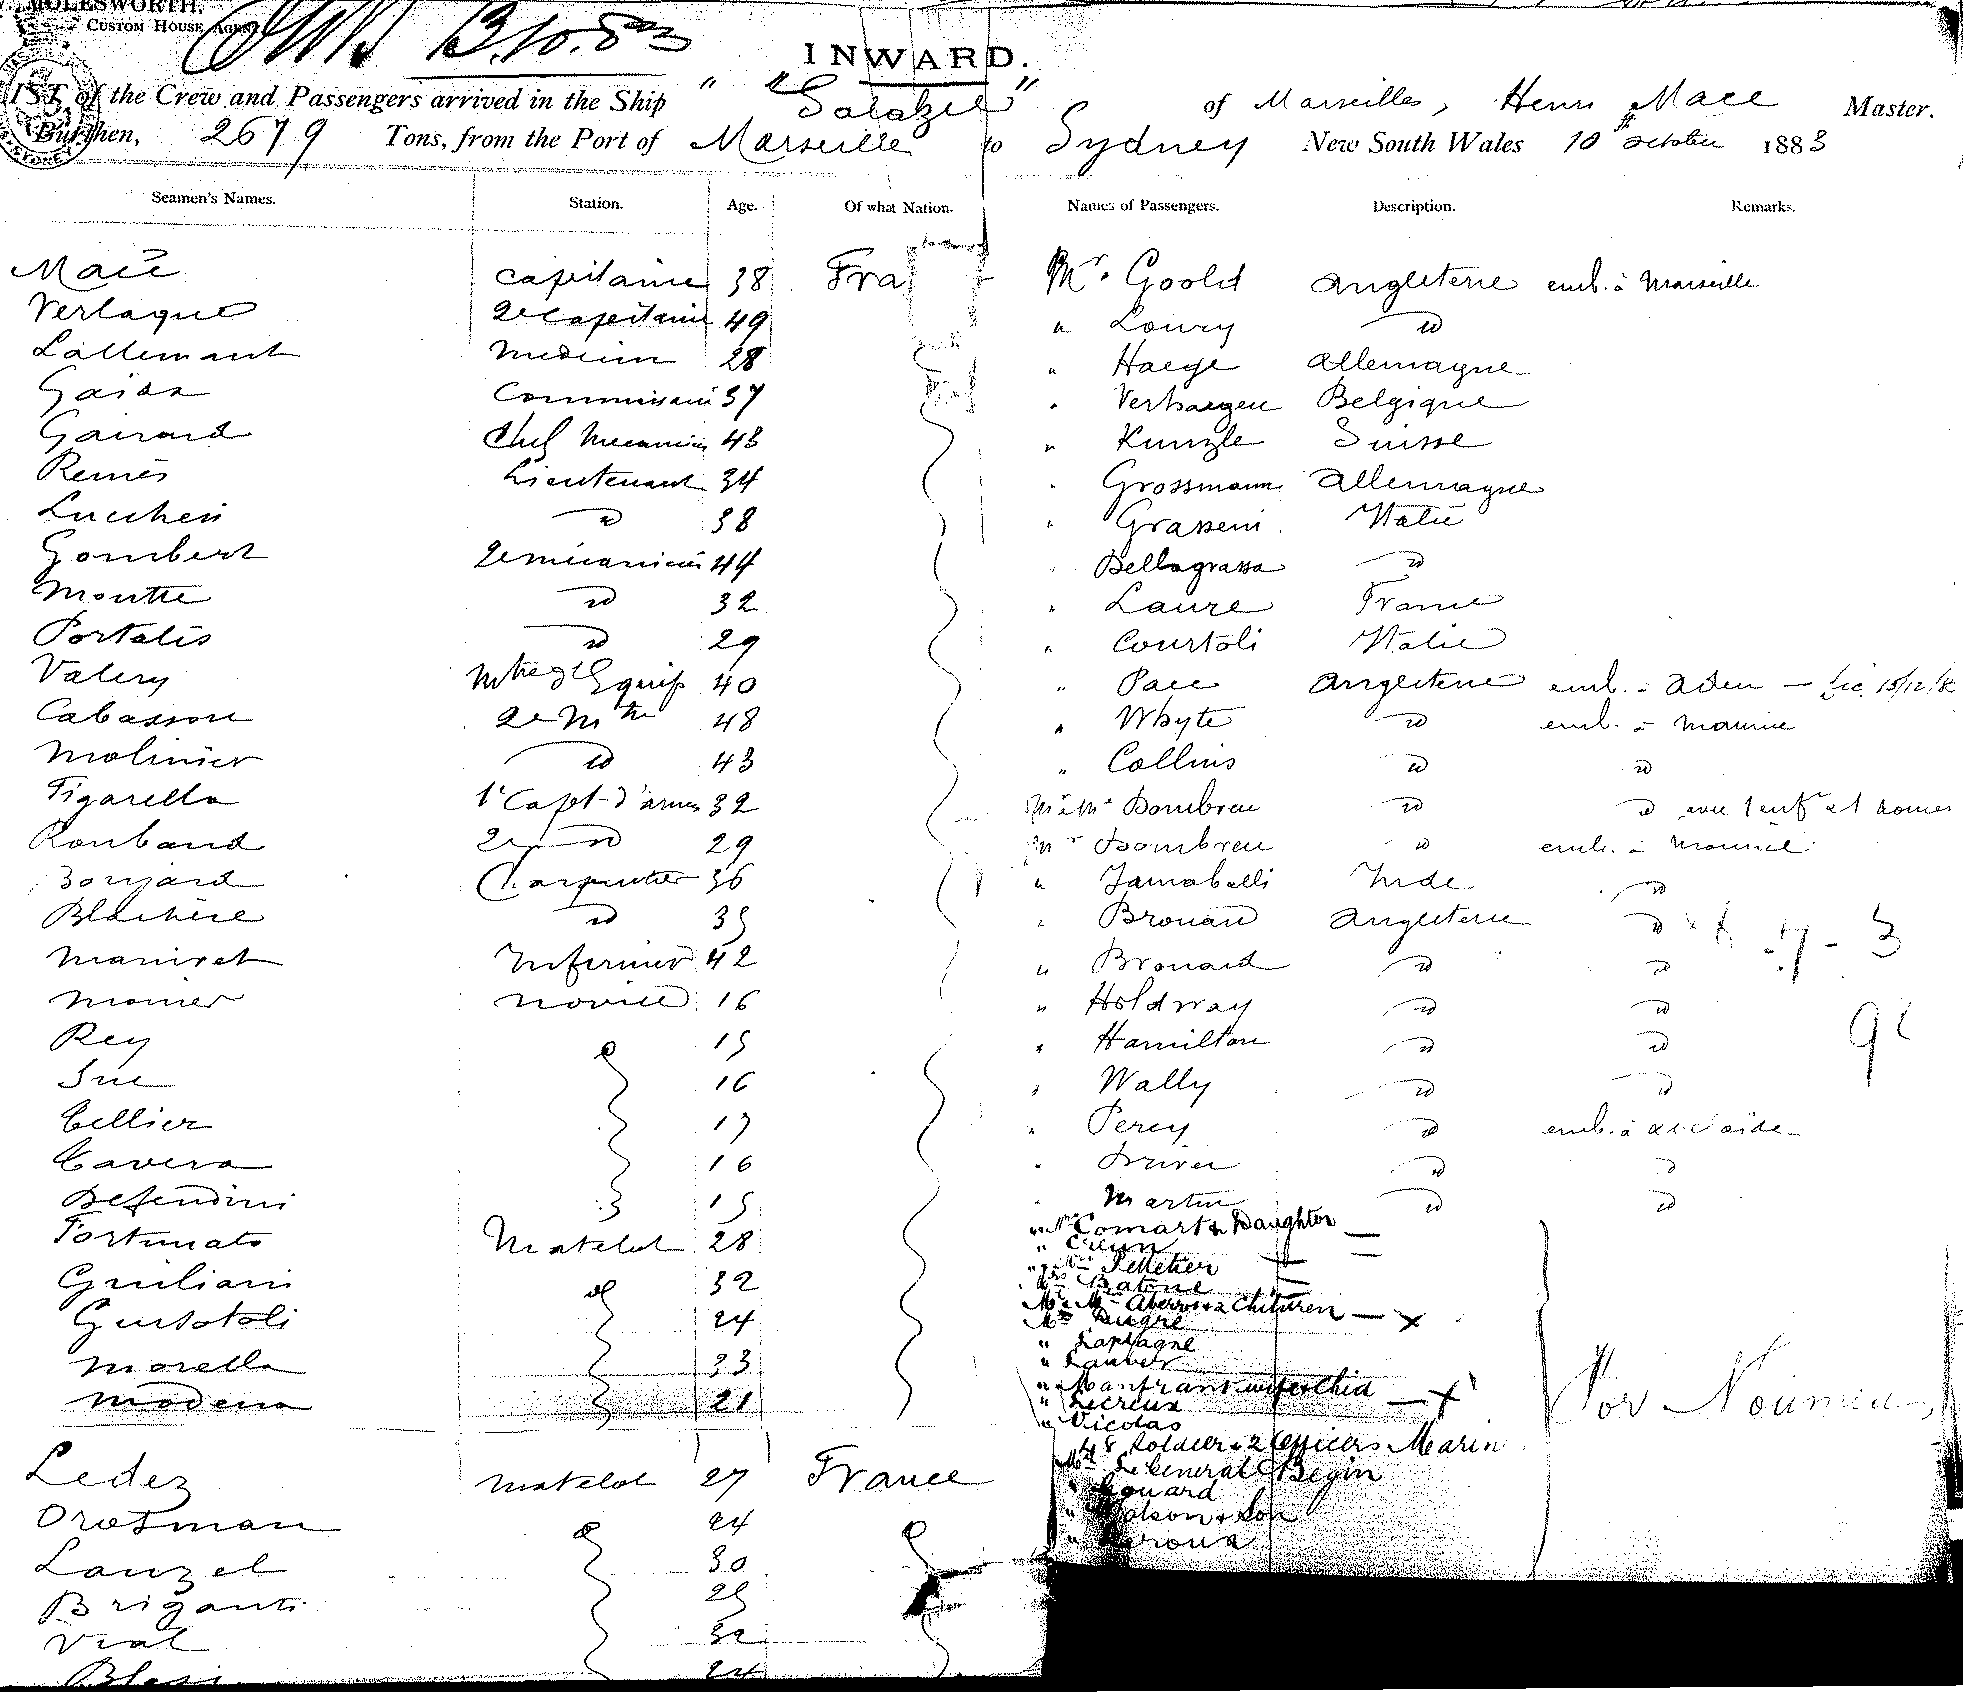 MOLESWORTH,
CUSTOM HOUSE AGENT
INWARD.
LIST of the Crew and Passengers arrived in the Ship " "Salazie" of Marseilles, Henri Mace Master.
Burthen, 2679 Tons, from the Port of Marseille to Sydney New South Wales 10th October 1883
Seamen's Names. Station. Age. Of what Nation. Names of Passengers. Description. Remarks.
Macé capitaine 38 Fra Mr. Goold angleterre emb. à Marseille
Verlaque 2e capitaine 49 " Loury id
Lallemant Medecin 28 " Haege allemagne
Commissaire 37 " Verhaegen Belgique
Gairard Chef Mecanicien 43 " Kunzle Suisse
Remès Lieutenant 34 " Grossmann allemagne
Luccheri id 38 " Grasseni Italie
Gombert 2e mecanicien 44 Bellagrassa id
Moutte id 32 " Laure France
Portalis id 29 " Courtoli Italie
Valery Mtre d'Equip 40 " Pace angleterre emb. à Aden
Cabasson 2e Mtre 48 " Whyte id emb. à Maurice
Molinier id 43 " Collins id id
Figarella 1r Capt-d'armes 32 Dombreu id id avec 1 enft et
Roubaud 2e id 29 Mr Dombreu id emb. à Maurice
Charpentier 36 " Jamaballi Inde id
Blachère id 35 " Brouan angleterre id
Manivet Infirmier 42 " Brouard id id
Monier novice 16 " Holdway id id
Rey 15 " Hamilton id id
Sue 16 " Wally id id
Cellier 17 " Percy id emb. à adelaide
Cavera 16 " Driver id id
Defendini 15 Martin id id
Fortunato Matelot 28 Comart & Daughter
Giuliani 32 " Pelletier
Gustotoli 24 Batone
Morella 33 " Lapagne
Modena 21 " Manfrant wife & Chid
" Lecreux
" Nicolas
48 Soldiers & 2 Officers Marin
For Noumea
Ledez matelot 27 France Le General Begin
Orosman 24
Lauzel 30
Briganti 25
Vial 32
Blasi 24